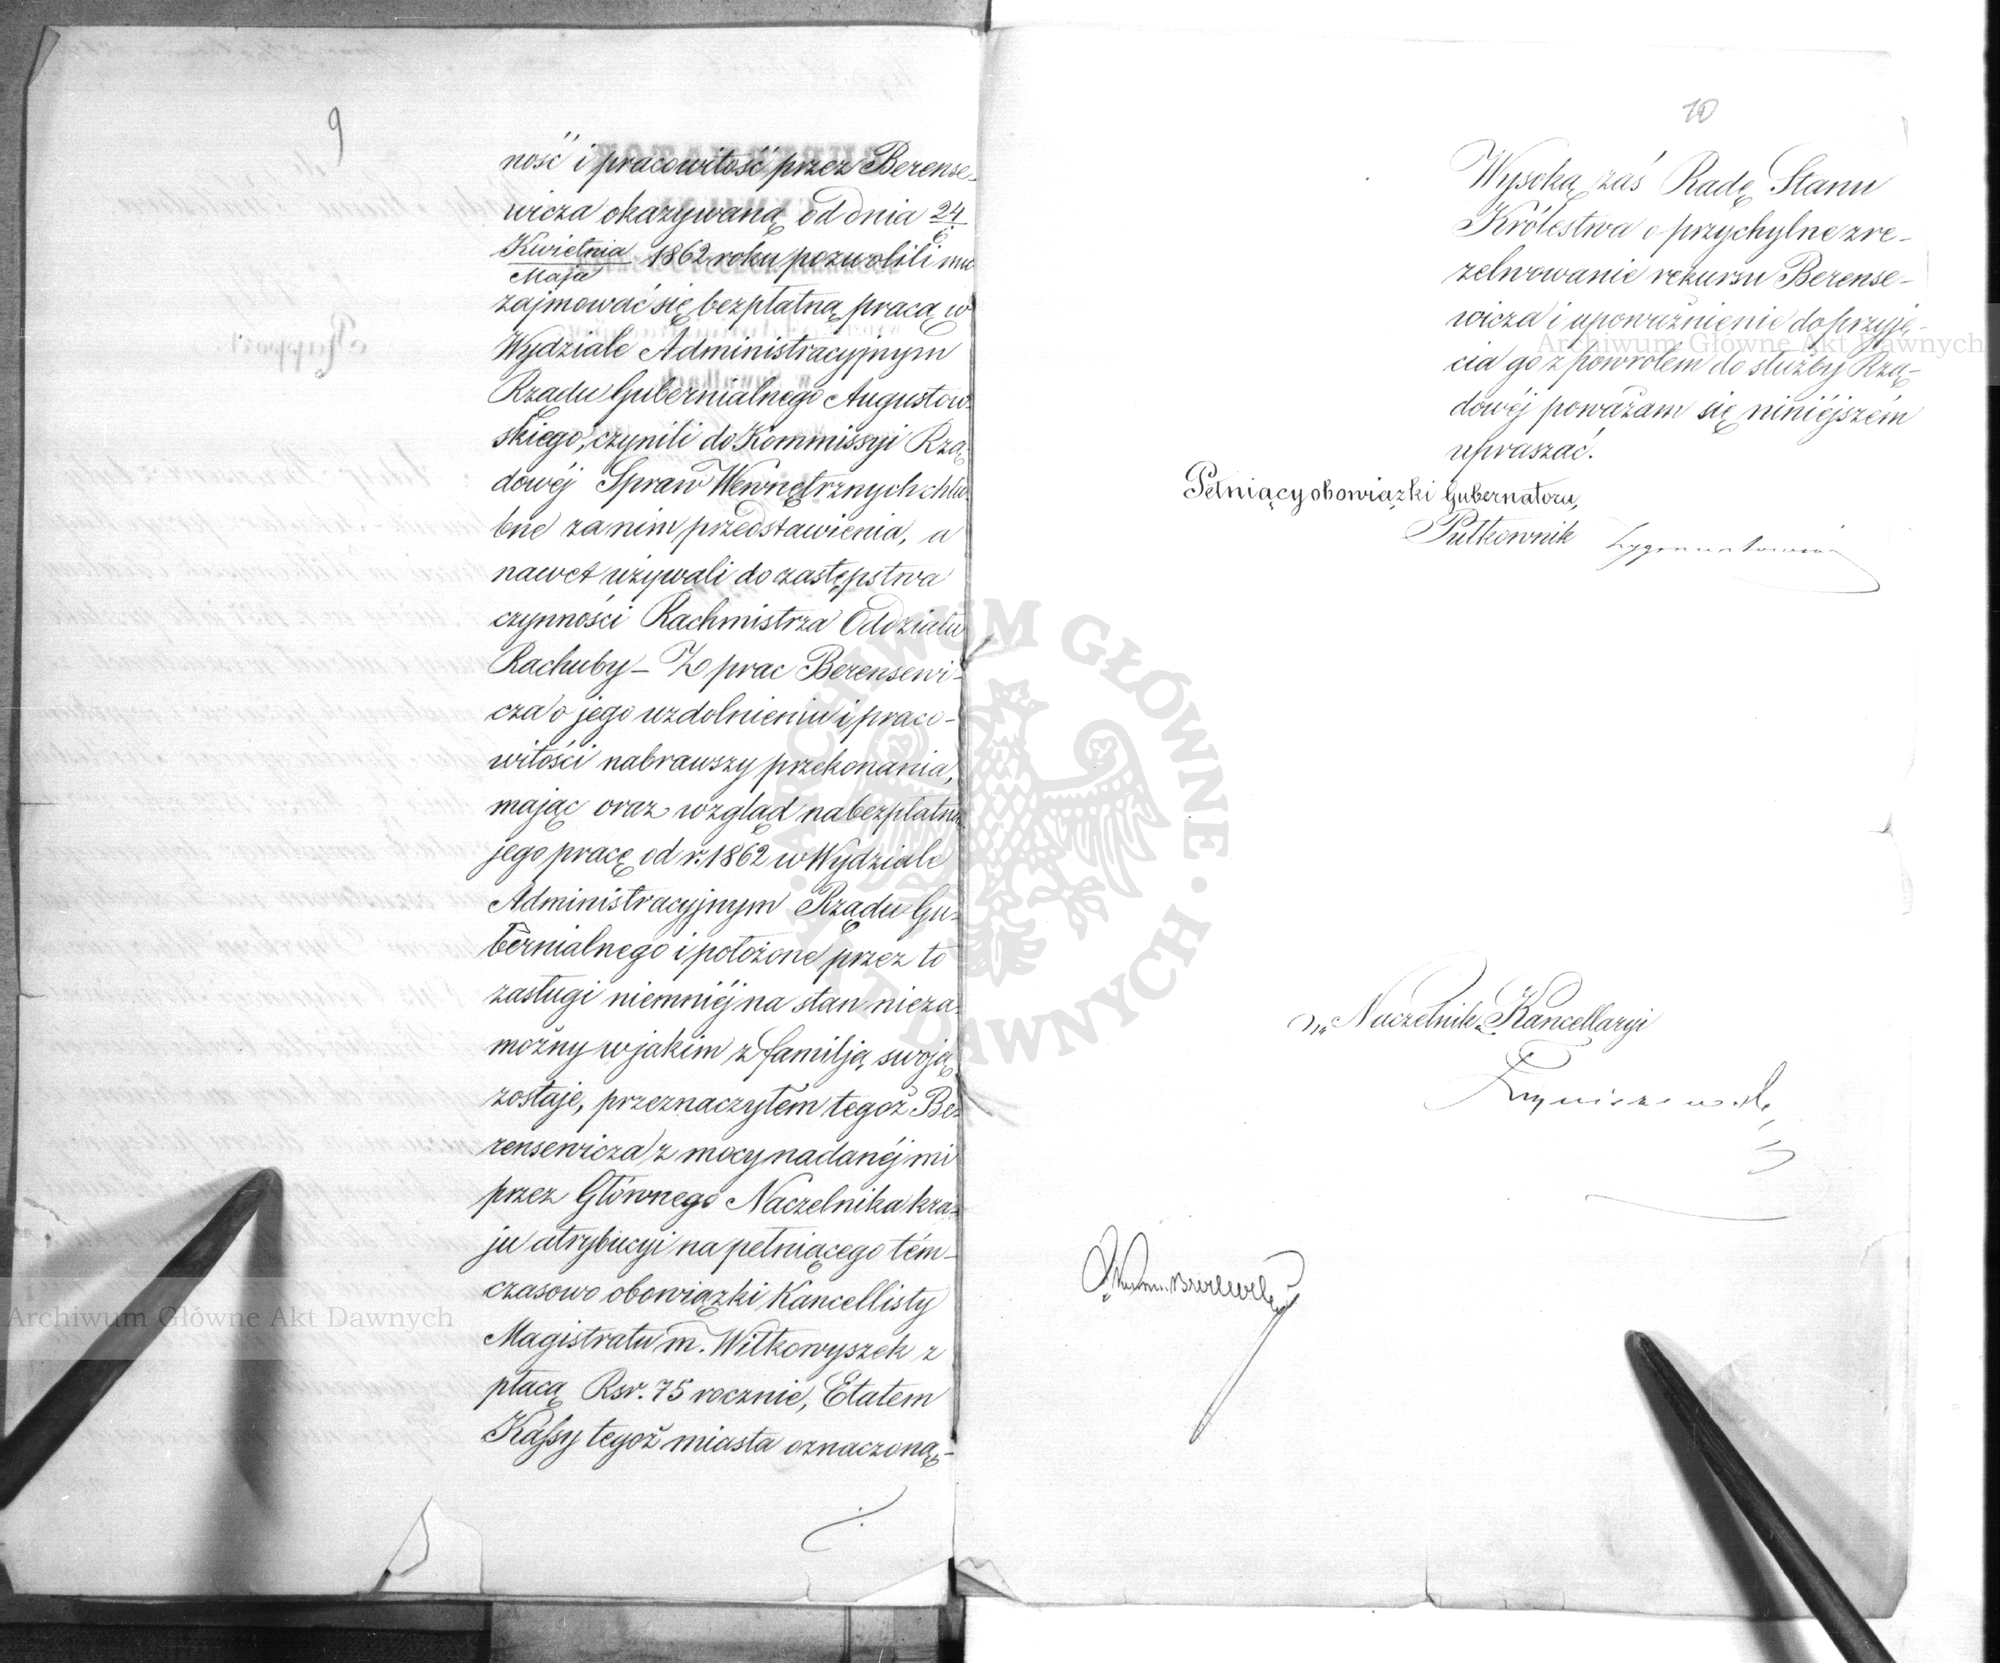 9
ność i pracowitość przez Berense-
wicza okazywaną od dnia 24/6
Kwietnia/Maja 1862 roku pozwolili mu
zajmować się bezpłatną pracą w
Wydziale Administracyjnym
Rządu Gubernialnego Augustow-
skiego, czynili do Kommissyi Rzą-
dowéj Spraw Wewnętrznych chlu-
bne za nim przedstawienia, a
nawet używali do zastępstwa
czynności Rachmistrza Oddziału
Rachuby – Z prac Berensewi-
cza o jego uzdolnieniu i praco-
witości nabrawszy przekonania,
mając oraz wzgląd na bezpłatną
jego pracę od r. 1862 w Wydziale
Administracyjnym Rządu Gu-
bernialnego i położone przez to
zasługi niemniéj na stan nieza-
możny w jakim z familją swoją
zostaje, przeznaczyłem tegoż Be-
rensewicza z mocy nadanéj mi
przez Głównego Naczelnika kra-
ju atrybucyi na pełniącego tém-
czasowo obowiązki Kancellisty
Magistratu m. Wiłkowyszek z
płacą Rsr. 75 rocznie, Etatem
Kassy tegoż miasta oznaczoną –
10
Wysoką zaś Radę Stanu
Królestwa o przychylne zre-
zelwowanie rekursu Berense-
wicza i upoważnienie do przyję-
cia go z powrotem do służby Rzą-
dowéj poważam się niniéjszém
upraszać.
Pełniący obowiązki Gubernatora,
Pułkownik
Naczelnik Kancellaryi
Archiwum Główne Akt Dawnych
Archiwum Główne Akt Dawnych
ARCHIWUM GŁÓWNE AKT DAWNYCH